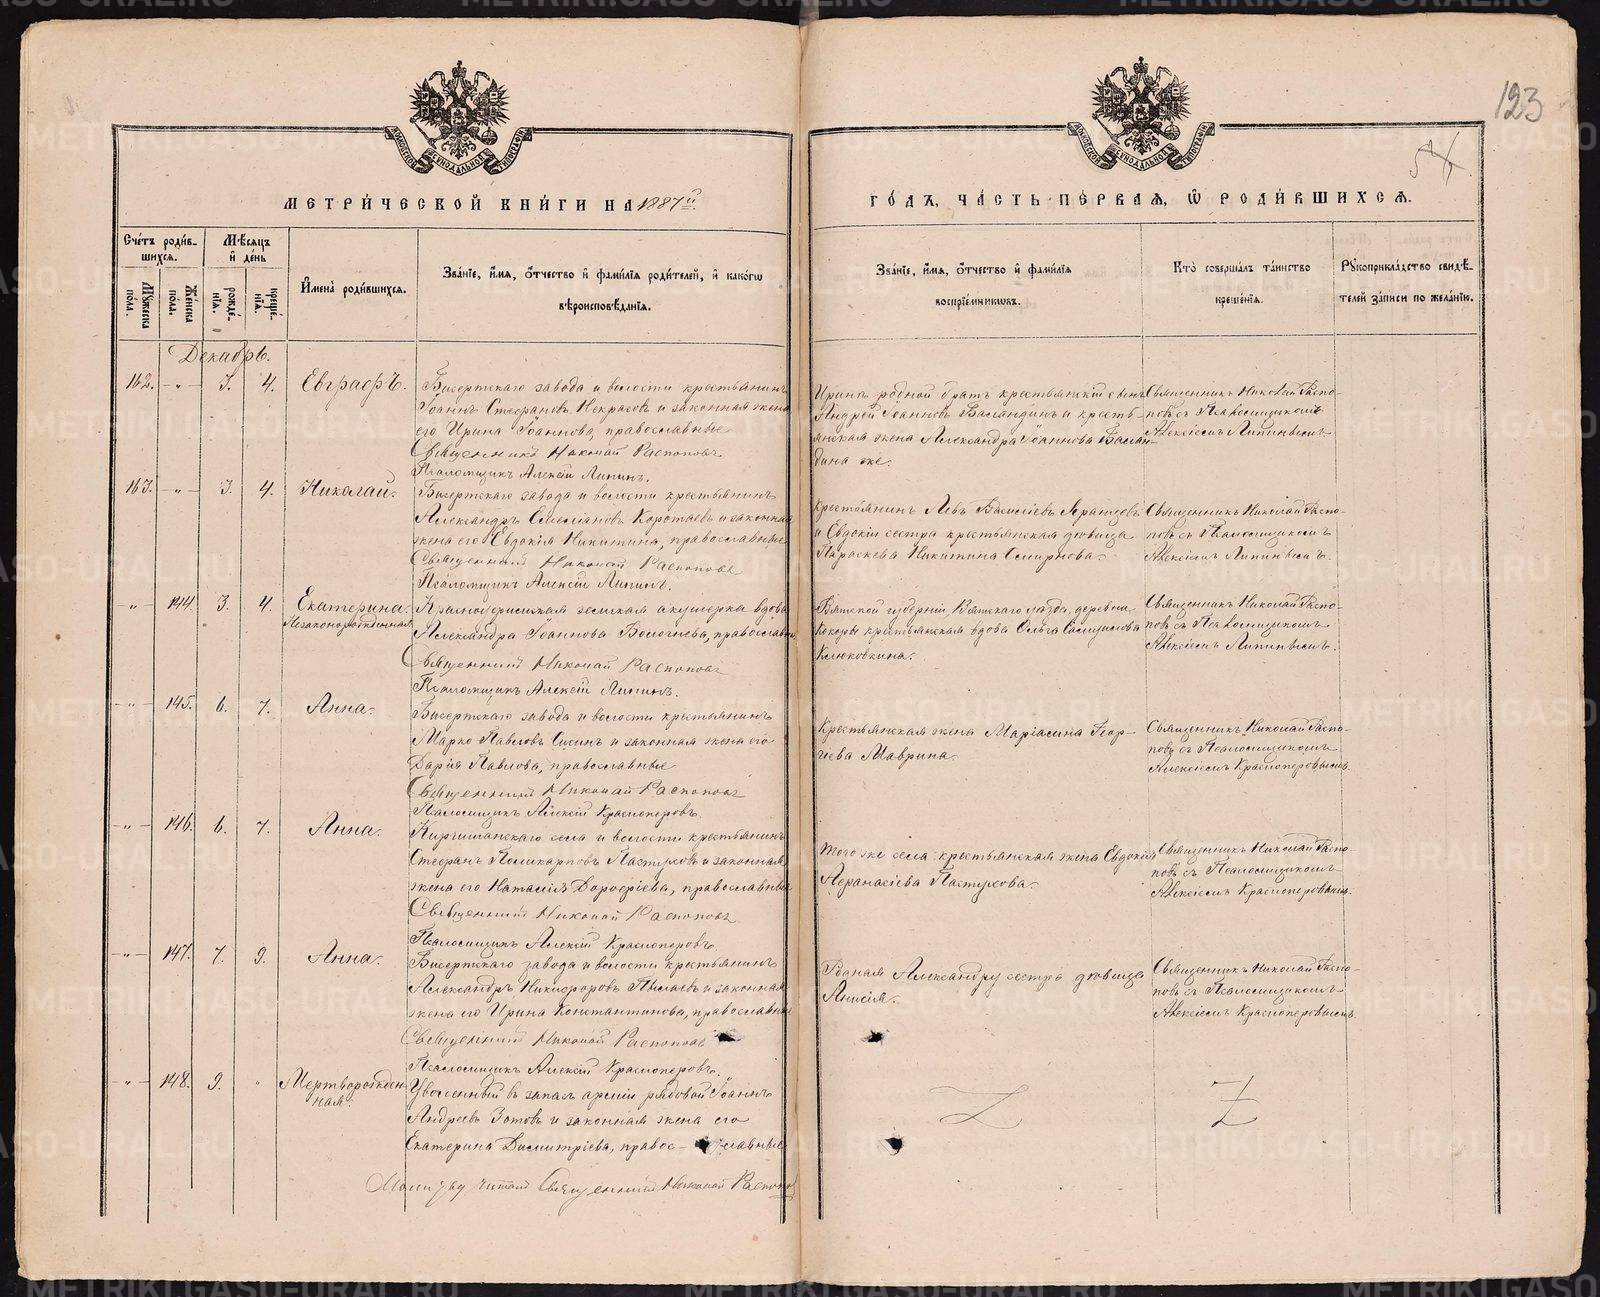 123
МЕТРИ́ЧЕСКОЙ КНИ́ГИ НА 1887й
ГО́ДЪ, ЧА́СТЬ ПЕ́РВАЯ, Ѡ҆ РОДИ́ВШИХСЯ.
Сче́тъ роди́в-
шихся.
Мꙋжеска по́ла.
Же́нска по́ла.
Мѣ́сяцъ
и҆ де́нь
рожде́-
нїя.
креще́-
нїя.
И҆мена̀ роди́вшихся.
Зва́нїе, и҆́мя, ѻ҆́тчество и҆ фами́лїя роди́телей, и҆ како́гѡ
вѣроисповѣ́данїя.
Зва́нїе, и҆́мя, ѻ҆́тчество и҆ фами́лїя
воспрїе́мникѡвъ.
Кто̀ соверша́лъ та́инство
креще́нїя.
Рꙋкоприкла́дство свидѣ́-
телей за́писи по жела́нїю.
Декабрь.
162. - " - 3. 4. Евграфъ.
Бисертскаго завода и волости крестьянинъ
Іоаннъ Стефановъ Некрасовъ и законная жена
его Ирина Іоаннова, православные
Священникъ Николай Распоповъ
Псаломщикъ Алексій Липинъ.
Иринѣ родной братъ крестьянскій сынъ
Андрей Іоанновъ Баландинъ и кресть-
янская жена Александра Іоаннова Балан-
дина же.
Священникъ Николай Распо-
повъ съ Псаломщикомъ
Алексіемъ Липинымъ.
163. - " - 3. 4. Николай.
Бисертскаго завода и волости крестьянинъ
Александръ Емеліановъ Коротаевъ и законная
жена его Евдокія Никитина, православные
Священникъ Николай Распоповъ
Псаломщикъ Алексій Липинъ.
Крестьянинъ Левъ Василіевъ
и Евдокіи сестра крестьянская дѣвица
Параскева Никитина Смирнова.
Священникъ Николай Распо-
повъ съ Псаломщикомъ
Алексіемъ Липинымъ.
- " - 144. 3. 4. Екатерина.
Незаконорожденная
Красноуфимская земская акушерка вдова
Александра Іоаннова Вологнева, православн
Священникъ Николай Распоповъ
Псаломщикъ Алексій Липинъ.
Вятской губерніи, Вятскаго уезда, деревни
крестьянская вдова Ольга Самуилова
Клюковкина.
Священникъ Николай Распо-
повъ съ Псаломщикомъ
Алексіемъ Липинымъ.
- " - 145. 6. 7. Анна.
Бисертскаго завода и волости крестьянинъ
Марко Павловъ Сысинъ и законная жена его
Дарія Павлова, православные
Священникъ Николай Распоповъ
Псаломщикъ Алексій Красноперовъ.
Крестьянская жена Маріамна Геор-
гіева Маврина.
Священникъ Николай Распо-
повъ съ Псаломщикомъ
Алексіемъ Красноперовымъ.
- " - 146. 6. 7. Анна.
Киргишанскаго села и волости крестьянинъ
Стефанъ Поликарповъ Пастуховъ и законная
жена его Наталія Дорофеіева, православные
Священникъ Николай Распоповъ
Псаломщикъ Алексій Красноперовъ.
Того же села крестьянская жена Евдокія
Афанасіева Пастухова.
Священникъ Николай Распо-
повъ съ Псаломщикомъ
Алексіемъ Красноперовымъ.
- " - 147. 7. 9. Анна.
Бисертскаго завода и волости крестьянинъ
Александръ Никифоровъ Пылаевъ и законная
жена его Ирина Константинова, православные
Священникъ Николай Распоповъ
Псаломщикъ Алексій Красноперовъ.
Родная Александру сестра дѣвица
Анисія.
Священникъ Николай Распо-
повъ съ Псаломщикомъ
Алексіемъ Красноперовымъ.
- " - 148. 9. " Мертворожден-
ная.
Уволенный въ запасъ арміи рядовой Іоаннъ
Андреевъ Зотовъ и законная жена его
Екатерина Димитріева, правос- лавные
Молитву читалъ Священникъ Николай Распопов
METRIKI.GASO-URAL.RU